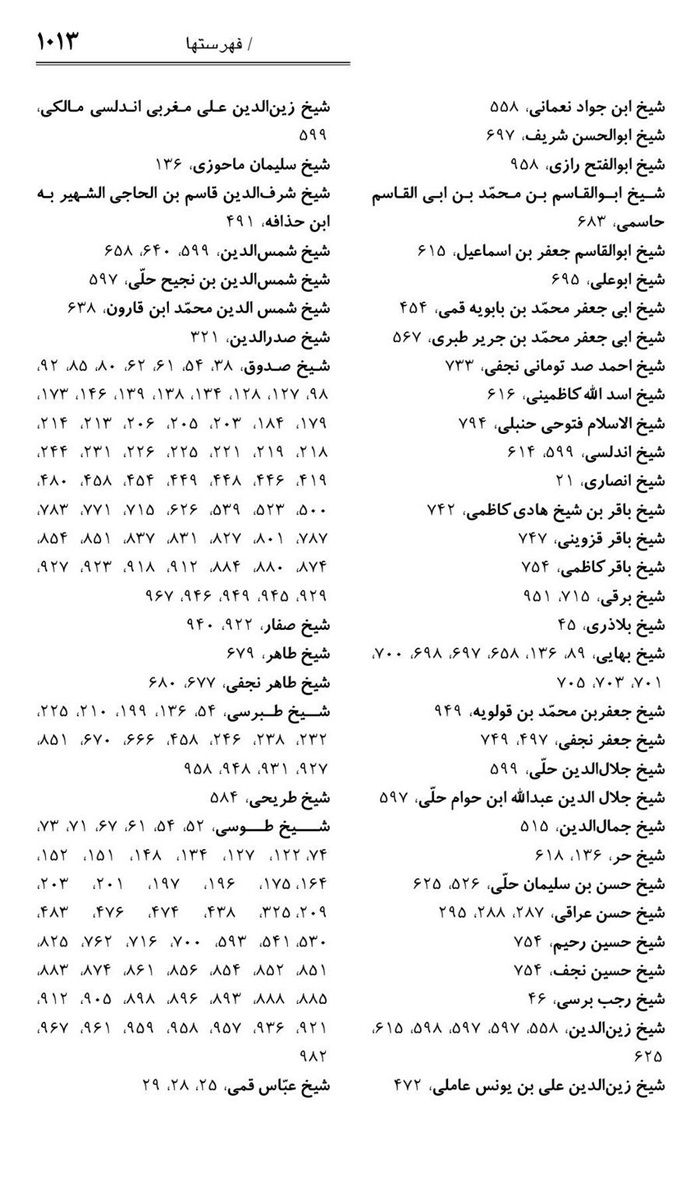 / فهرستها
۱۰۱۳
شیخ ابن جواد نعمانی، ۵۵۸
شیخ ابوالحسن شریف، ۶۹۷
شیخ ابوالفتح رازی، ۹۵۸
شیخ ابوالقاسم بن محمّد بن ابی القاسم
حاسمی، ۶۸۳
شیخ ابوالقاسم جعفر بن اسماعیل، ۶۱۵
شیخ ابوعلی، ۶۹۵
شیخ ابی جعفر محمّد بن بابویه قمی، ۴۵۴
شیخ ابی جعفر محمّد بن جریر طبری، ۵۶۷
شیخ احمد صد تومانی نجفی، ۷۳۳
شیخ اسد الله کاظمینی، ۶۱۶
شیخ الاسلام فتوحی حنبلی، ۷۹۴
شیخ اندلسی، ۵۹۹، ۶۱۴
شیخ انصاری، ۲۱
شیخ باقر بن شیخ هادی کاظمی، ۷۴۲
شیخ باقر قزوینی، ۷۴۷
شیخ باقر کاظمی، ۷۵۴
شیخ برقی، ۷۱۵، ۹۵۱
شیخ بلاذری، ۴۵
شیخ بهایی، ۸۹، ۱۳۶، ۶۵۸، ۶۹۷، ۶۹۸، ۷۰۰،
۷۰۱، ۷۰۳، ۷۰۵
شیخ جعفربن محمّد بن قولویه، ۹۴۹
شیخ جعفر نجفی، ۴۹۷، ۷۴۹
شیخ جلال‌الدین حلّی، ۵۹۹
شیخ جلال الدین عبدالله ابن حوام حلّی، ۵۹۷
شیخ جمال‌الدین، ۵۱۵
شیخ حر، ۱۳۶، ۶۱۸
شیخ حسن بن سلیمان حلّی، ۵۲۶، ۶۲۵
شیخ حسن عراقی، ۲۸۷، ۲۸۸، ۲۹۵
شیخ حسین رحیم، ۷۵۴
شیخ حسین نجف، ۷۵۴
شیخ رجب برسی، ۴۶
شیخ زین‌الدین، ۵۵۸، ۵۹۷، ۵۹۷، ۵۹۸، ۶۱۵،
۶۲۵
شیخ زین‌الدین علی بن یونس عاملی، ۴۷۲
شیخ زین‌الدین علی مغربی اندلسی مالکی،
۵۹۹
شیخ سلیمان ماحوزی، ۱۳۶
شیخ شرف‌الدین قاسم بن الحاجی الشهیر به
ابن حذافه، ۴۹۱
شیخ شمس‌الدین، ۵۹۹، ۶۴۰، ۶۵۸
شیخ شمس‌الدین بن نجیح حلّی، ۵۹۷
شیخ شمس الدین محمّد ابن قارون، ۶۳۸
شیخ صدرالدین، ۳۲۱
شیخ صدوق، ۳۸، ۵۴، ۶۱، ۶۲، ۸۰، ۸۵، ۹۲،
۹۸، ۱۲۷، ۱۲۸، ۱۳۴، ۱۳۸، ۱۳۹، ۱۴۶، ۱۷۳،
۱۷۹، ۱۸۴، ۲۰۳، ۲۰۵، ۲۰۶، ۲۱۳، ۲۱۴،
۲۱۸، ۲۱۹، ۲۲۱، ۲۲۵، ۲۲۶، ۲۳۱، ۲۴۴،
۴۱۹، ۴۴۶، ۴۴۸، ۴۴۹، ۴۵۴، ۴۵۸، ۴۸۰،
۵۰۰، ۵۲۳، ۵۳۹، ۶۲۶، ۷۱۵، ۷۷۱، ۷۸۳،
۷۸۷، ۸۰۱، ۸۲۷، ۸۳۱، ۸۳۷، ۸۵۱، ۸۵۴،
۸۷۴، ۸۸۰، ۸۸۴، ۹۱۲، ۹۱۸، ۹۲۳، ۹۲۷،
۹۲۹، ۹۴۵، ۹۴۹، ۹۴۶، ۹۶۷
شیخ صفار، ۹۲۲، ۹۴۰
شیخ طاهر، ۶۷۹
شیخ طاهر نجفی، ۶۷۷، ۶۸۰
شیخ طبرسی، ۵۴، ۱۳۶، ۱۹۹، ۲۱۰، ۲۲۵،
۲۳۲، ۲۳۸، ۲۴۶، ۴۵۸، ۶۶۶، ۶۷۰، ۸۵۱،
۹۲۷، ۹۳۱، ۹۴۸، ۹۵۸
شیخ طریحی، ۵۸۴
شیخ طوسی، ۵۲، ۵۴، ۶۱، ۶۷، ۷۱، ۷۳،
۷۴، ۱۲۲، ۱۲۷، ۱۳۴، ۱۴۸، ۱۵۱، ۱۵۲،
۱۶۴، ۱۷۵، ۱۹۶، ۱۹۷، ۲۰۱، ۲۰۳،
۲۰۹، ۳۲۵، ۴۳۸، ۴۷۴، ۴۷۶، ۴۸۳،
۵۳۰، ۵۴۱، ۵۹۳، ۷۰۰، ۷۱۶، ۷۶۲، ۸۲۵،
۸۵۱، ۸۵۲، ۸۵۴، ۸۵۶، ۸۶۱، ۸۷۴، ۸۸۳،
۸۸۵، ۸۸۸، ۸۹۳، ۸۹۶، ۸۹۸، ۹۰۵، ۹۱۲،
۹۲۱، ۹۳۶، ۹۵۷، ۹۵۸، ۹۵۹، ۹۶۱، ۹۶۷،
۹۸۲
شیخ عبّاس قمی، ۲۵، ۲۸، ۲۹